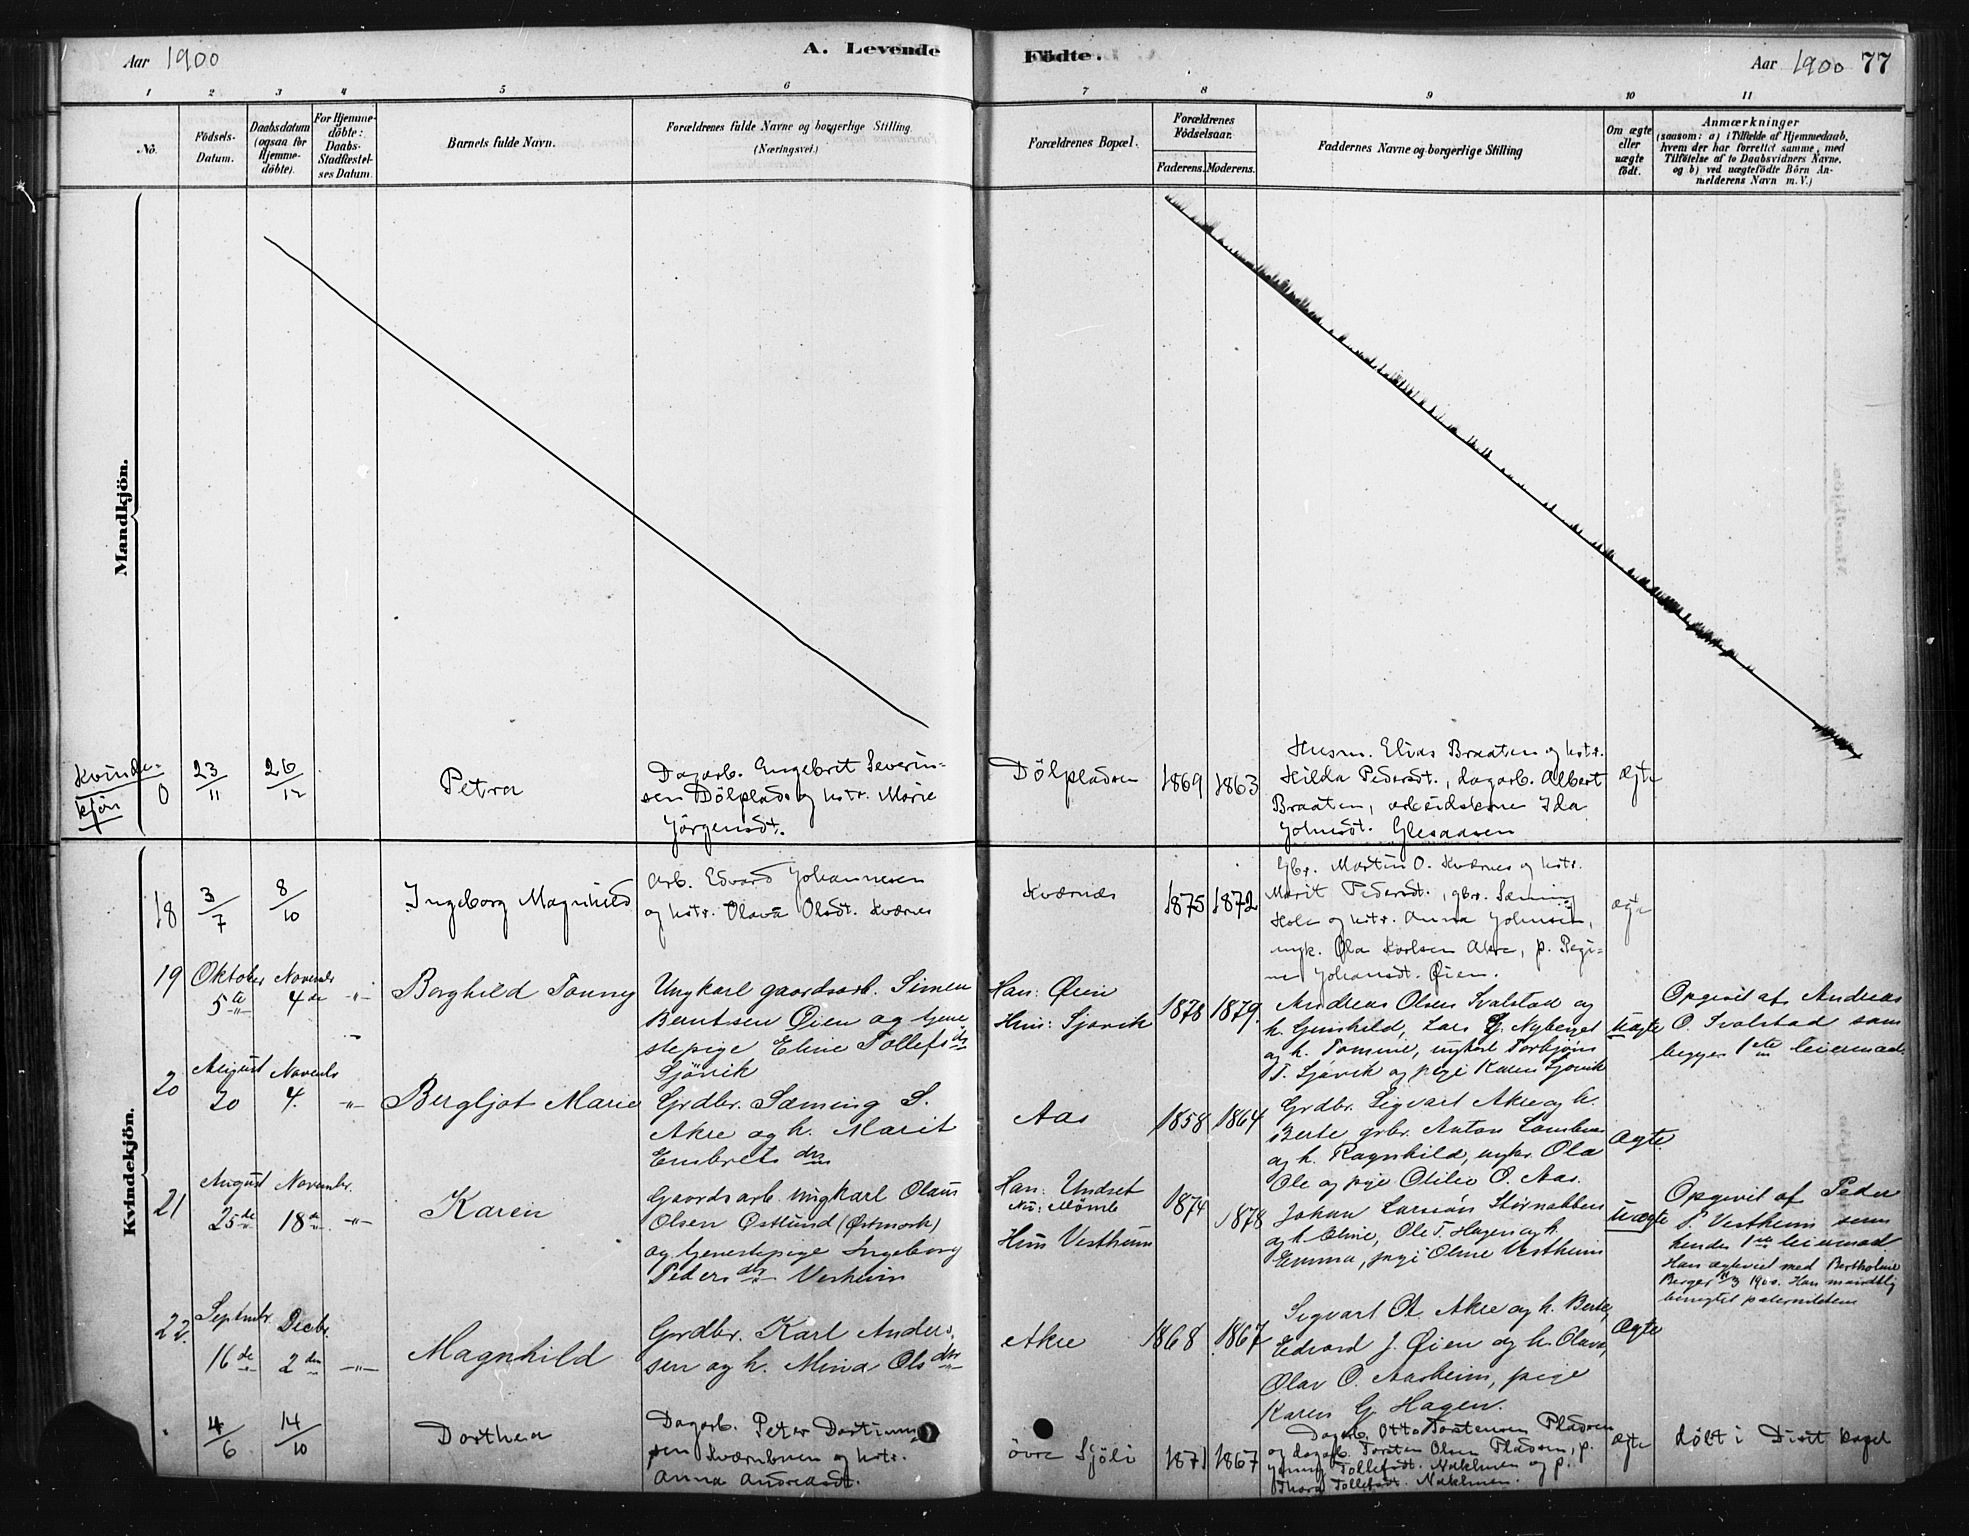 Aar 1900
A. Levende
Fødte.
Aar 1900 77
1 2 3 4 5 6 7 8 9 10 11
No.
Födsels-
Datum.
Daabsdatum
(ogsaa for
Hjemme-
døbte).
For Hjemme-
døbte:
Daabs-
Stadfæstel-
ses Datum.
Barnets fulde Navn.
Forældrenes fulde Navne og borgerlige Stilling
(Næringsvei.)
Forældrenes Bopæl.
Forældrenes
Födselsaar.
Faderens. Moderens.
Faddernes Navne og borgerlige Stilling
Om ægte
eller
uægte
født.
Anmærkninger
(saasom: a) i Tilfælde af Hjemmedaab,
hvem der har forrettet samme, med
Tilføielse af to Daabsvidners Navne,
og b) ved uægtefödte Börn An-
melderens Navn m. V.)
Mandkjön.
Kvinde-
kjön
0
23/11
26/12
Petra
Dagarb. Engebrit Severin-
sen Dölplads og kstr. Marie
Jörgensdt.
Dölpladsen
1869 1863
Husm. Elias Braaten og kstr.
Hilda Pedersdt., dagarb. Albert
Braaten, arbeidskone Ida
Johnsdt. Glesaasen
ægte
Kvindekjön.
18
3/7
8/10
Ingeborg Magnhild
Arb. Edvard Johannesen
og kstr. Olava Olsdt. Kværnes
Kværnæs
1875 1872
Gbr. Martin O. Kværnes og kstr.
Marit Pedersdt., gbr. Sæming
Hole og kstr. Anna Johnsen,
ungk. Ola Karlsen Akre, p. Regi-
ne Johansdt. Øien.
ægte
19
Oktober
5te
November
4de
Borghild Tonny
Ungkarl gaardsarb. Simen
Berntsen Øien og tjene
stepige Eline Tollefsdtr
Sjövik
Han: Øien
Hun: Sjøvik
1878 1879
Andreas Olsen Svalstad og
h. Gunhild, Lars G. Nyberget
og h. Tomine, ungkarl Torbjörn
T. Sjøvik og pige Karen Sjøvik
Uægte
Opgivet af Andreas
O. Svalstad som
begges 1ste leiermaal
20
August
20
Novembr
4.
Bergljot Marie
Grdbr. Sæming S.
Akre og h. Marit
Embretsdtr
Aas
1858 1864
Grdbr. Sigvart Akre og h.
Berte, grbr. Anton
og h. Ragnhild, ungkr. Ola
Ole og pige Otilie O. Aas.
Ægte
21
August
25de
Novembr.
18de
Karen
Gaardsarb. ungkarl Olaus
Olsen Østlund (Østmork)
og tjenestepige Ingeborg
Pedersdtr Vestheim
Han: Undset
Hun Vestheim
1874 1878
Johan Larsen Stornabben
og h Eline, Ole T. Hagen og h.
Emma, pige Oline Vestheim
Uægte
Opgivet af Peder
P. Vestheim som
hendes 1ste leiermaal.
Han ægteviet med Bertholine
Berger 1900. Han mundtlig
benegtet paterniteten
22.
Septembr
16de
Decbr.
2den
Magnhild
Grdbr. Karl Anders-
sen og h. Mina Olsdtr
Akre
1868 1867
Sigvart O. Akre og h. Berte,
Edvard J. Øien og h. Olava,
Olav O. Aasheim, pige
Karen G. Hagen.
Ægte
4/6
14/10
Dorthea
Dagarb. Peter
sen Kværnbuen og kstr.
Anna Andreasdt.
övre Sjöli
1871 1867
Dagarb. Otto Torstensen Pladsen
og dagarb. Torsten Olsen Pladsen, p.
Jenny Tollefsdt. Nakkmoen og p.
Thora Tollefsdt. Nakkmoen.
ægte
døbt i Distr. kapel